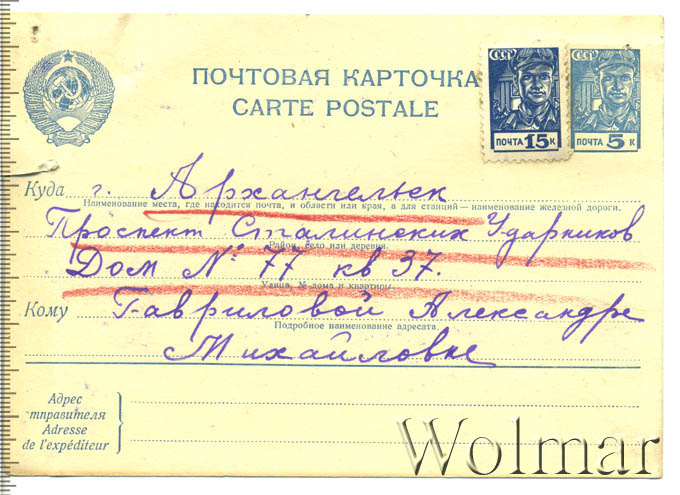 СССР
СССР
ПОЧТА 15 К
ПОЧТА 5 К
ПОЧТОВАЯ КАРТОЧКА
CARTE POSTALE
Куда г. Архангельск
Наименование места, где находится почта, и области или края, а для станций — наименование железной дороги.
Проспект Сталинских Ударников
Район, село или деревня.
Дом № 77 кв 37.
Улица, № дома и квартиры.
Кому Гавриловой Александре
Подробное наименование адресата.
Михайловне
Адрес
тправителя
Adresse
de l'expéditeur
Wolmar